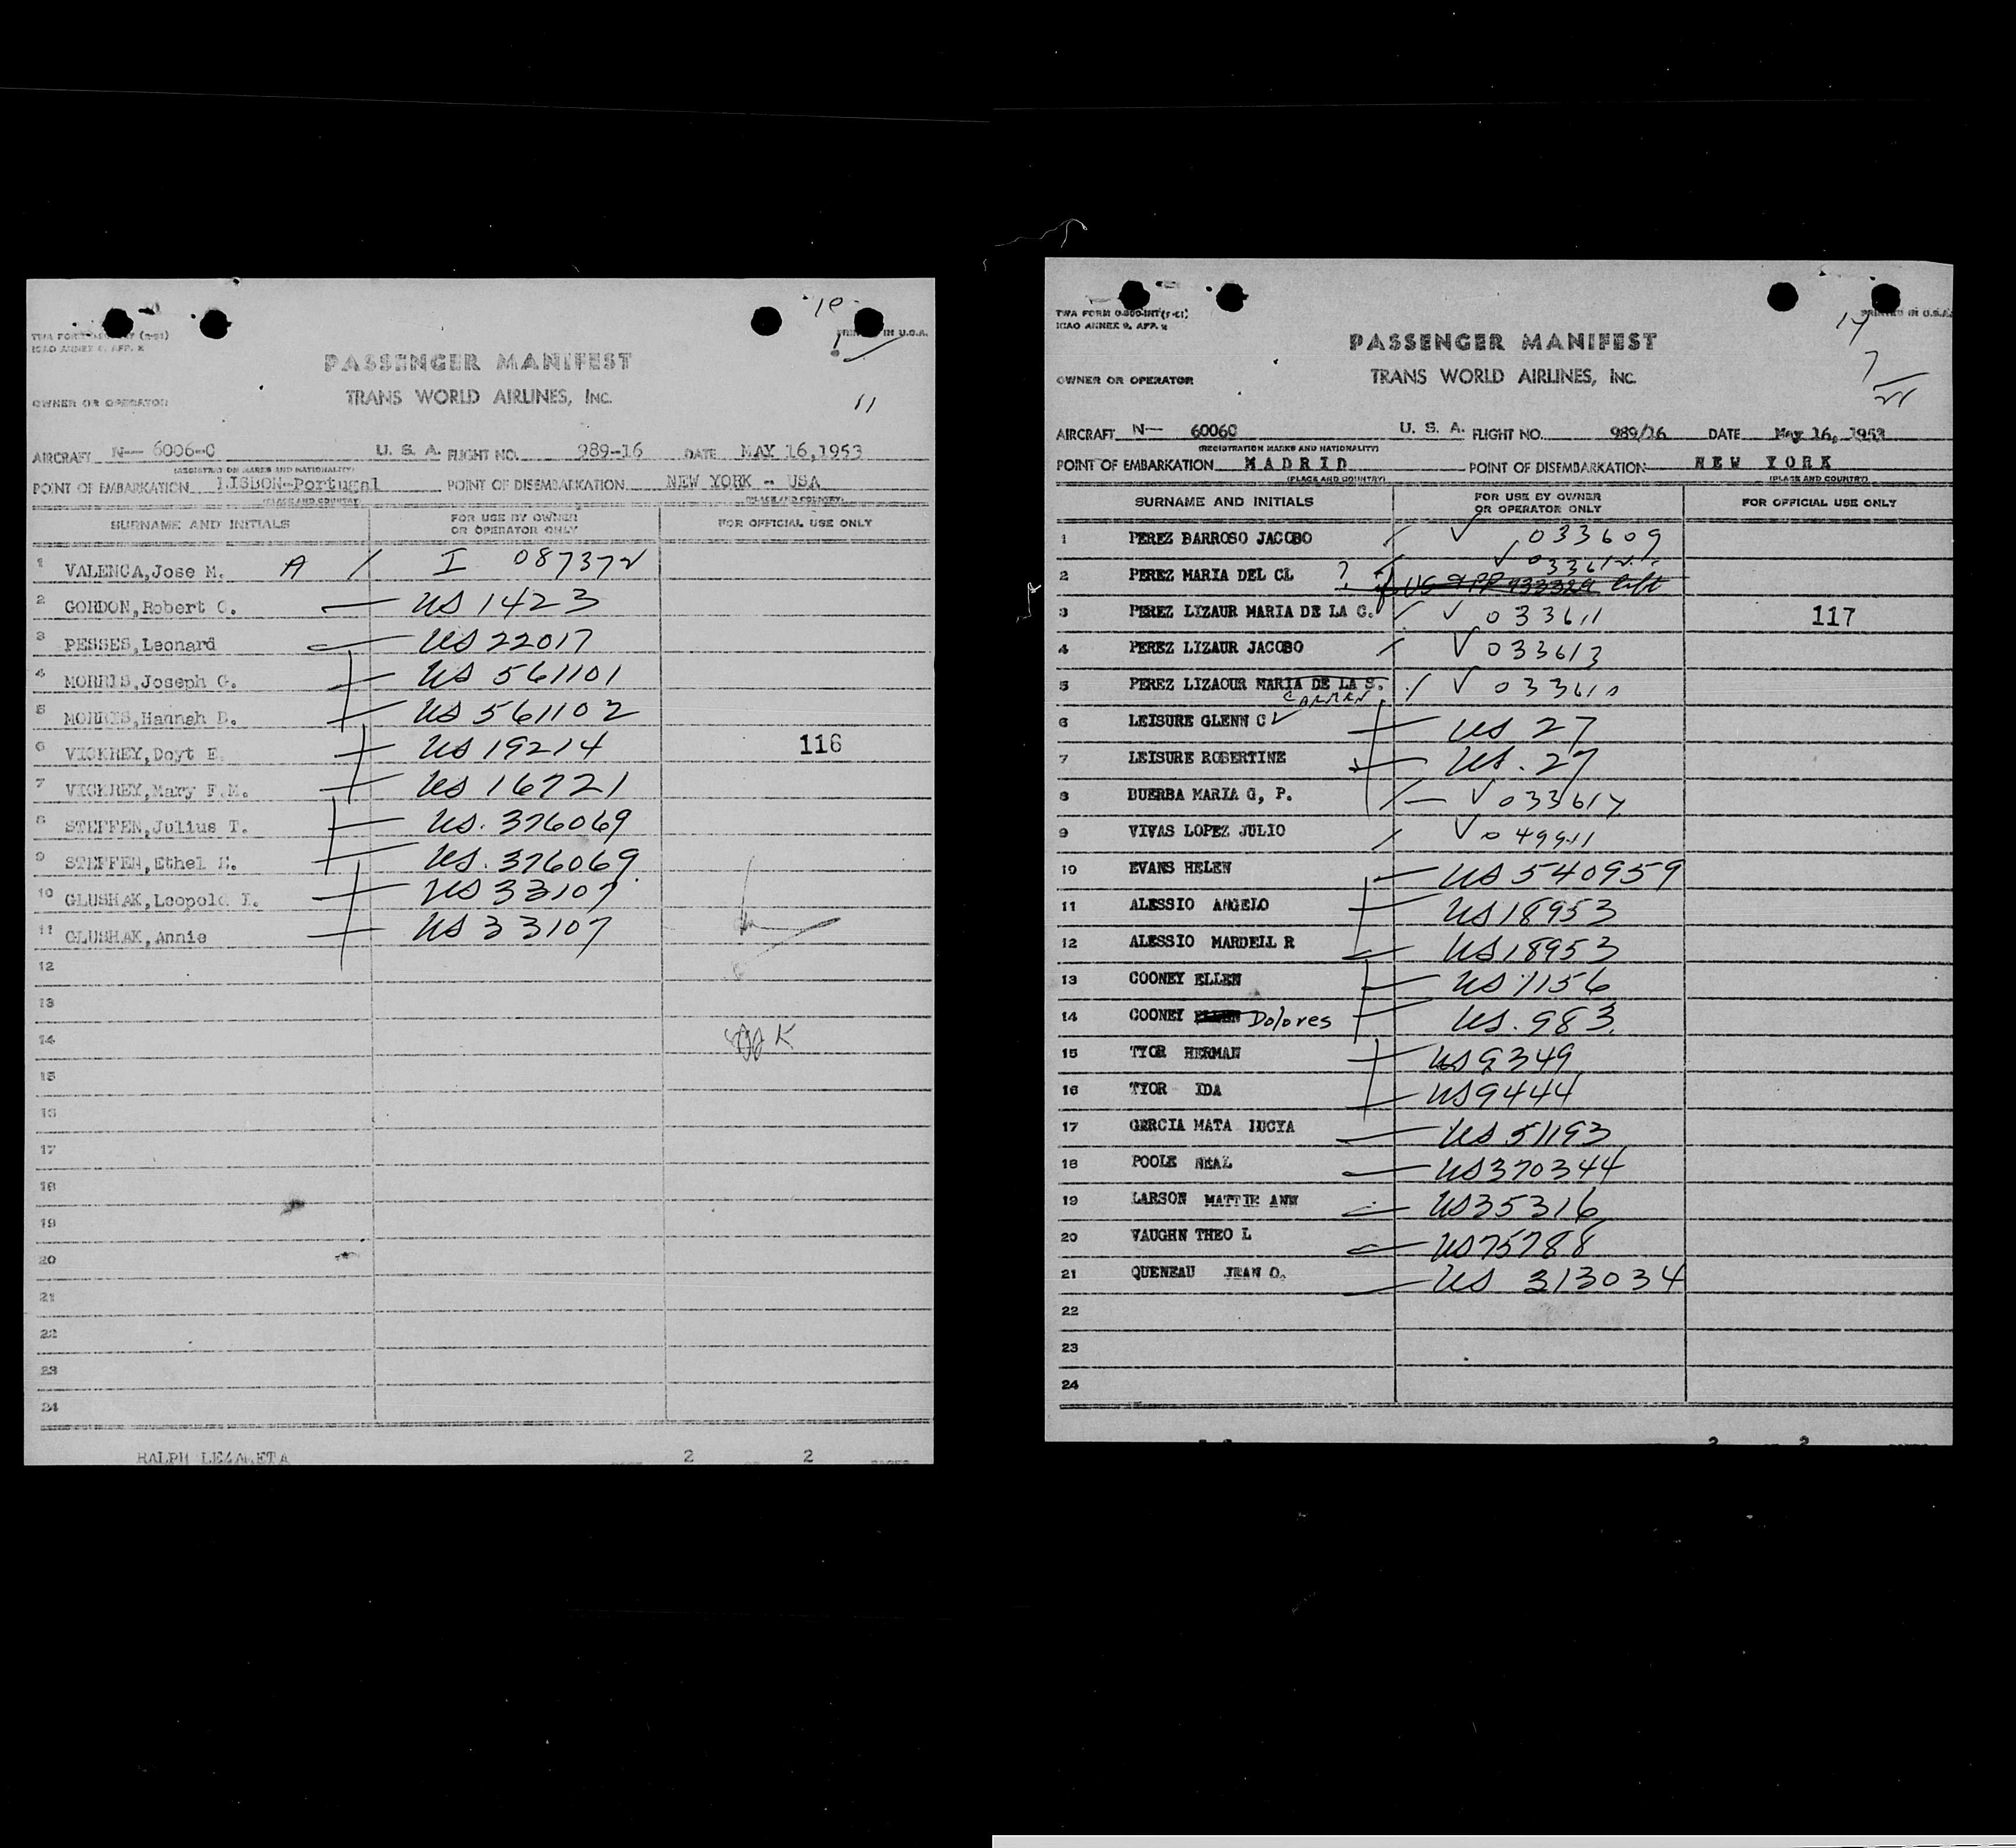 TWA FORM
ICAO ANNEX 9, APP. E
IN U.S.A.
PASSENGER MANIFEST
TRANS WORLD AIRLINES, INC.
OWNER OR OPERATOR
11
AIRCRAFT N— 6006-C U. S. A. FLIGHT NO. 989-16 DATE MAY 16,1953
(REGISTRATION MARKS AND NATIONALITY)
POINT OF EMBARKATION LISBON-Portugal POINT OF DISEMBARKATION NEW YORK - USA
(PLACE AND COUNTRY) (PLACE AND COUNTRY)
SURNAME AND INITIALS FOR USE BY OWNER OR OPERATOR ONLY FOR OFFICIAL USE ONLY
1 VALENCA,Jose M. A / I 087372
2 GORDON,Robert C. — US 1423
3 PESSES,Leonard US 22017
4 MORRIS,Joseph G. US 561101
5 MORRIS,Hannah D. US 561102
6 VICKREY,Doyt E. US 19214 116
7 VICKREY,Mary F.M. US 16721
8 STEFFEN,Julius T. US. 376069
9 STEFFEN,Ethel US. 376069
10 GLUSHAK,Leopold I. US 33107
11 GLUSHAK,Annie US 33107
12
13
14
15
16
17
18
19
20
21
22
23
24
RALPH LEZAMETA 2 2
TWA FORM
ICAO ANNEX 9, APP. E
PRINTED IN U.S.A.
14
7
21
PASSENGER MANIFEST
TRANS WORLD AIRLINES, INC.
OWNER OR OPERATOR
AIRCRAFT N— 6006C U. S. A. FLIGHT NO. 989/16 DATE May 16, 1953
(REGISTRATION MARKS AND NATIONALITY)
POINT OF EMBARKATION MADRID POINT OF DISEMBARKATION NEW YORK
(PLACE AND COUNTRY) (PLACE AND COUNTRY)
SURNAME AND INITIALS FOR USE BY OWNER OR OPERATOR ONLY FOR OFFICIAL USE ONLY
1 PEREZ BARROSO JACOBO / ✓ 033609
2 PEREZ MARIA DEL CL ? ✓
3 PEREZ LIZAUR MARIA DE LA C. / ✓ 033611 117
4 PEREZ LIZAUR JACOBO / ✓ 033613
5 PEREZ LIZAOUR MARIA DE LA S. / ✓ 033610
CARMEN
6 LEISURE GLENN C ✓ US 27
7 LEISURE ROBERTINE US. 27
8 BUERBA MARIA G, P. ✓ 033617
9 VIVAS LOPEZ JULIO / ✓ 049911
10 EVANS HELEN US 540959
11 ALESSIO ANGELO US 18953
12 ALESSIO MARDELL R US 18953
13 COONEY ELLEN US 1156
14 COONEY ELLEN Dolores US. 983
15 TYOR HERMAN US 9349
16 TYOR IDA US 9444
17 GERCIA MATA LUCYA US 51193
18 POOLE NEAL US 370344
19 LARSON MATTIE ANN US 35316
20 VAUGHN THEO L US 75788
21 QUENEAU JEAN O. US 313034
22
23
24